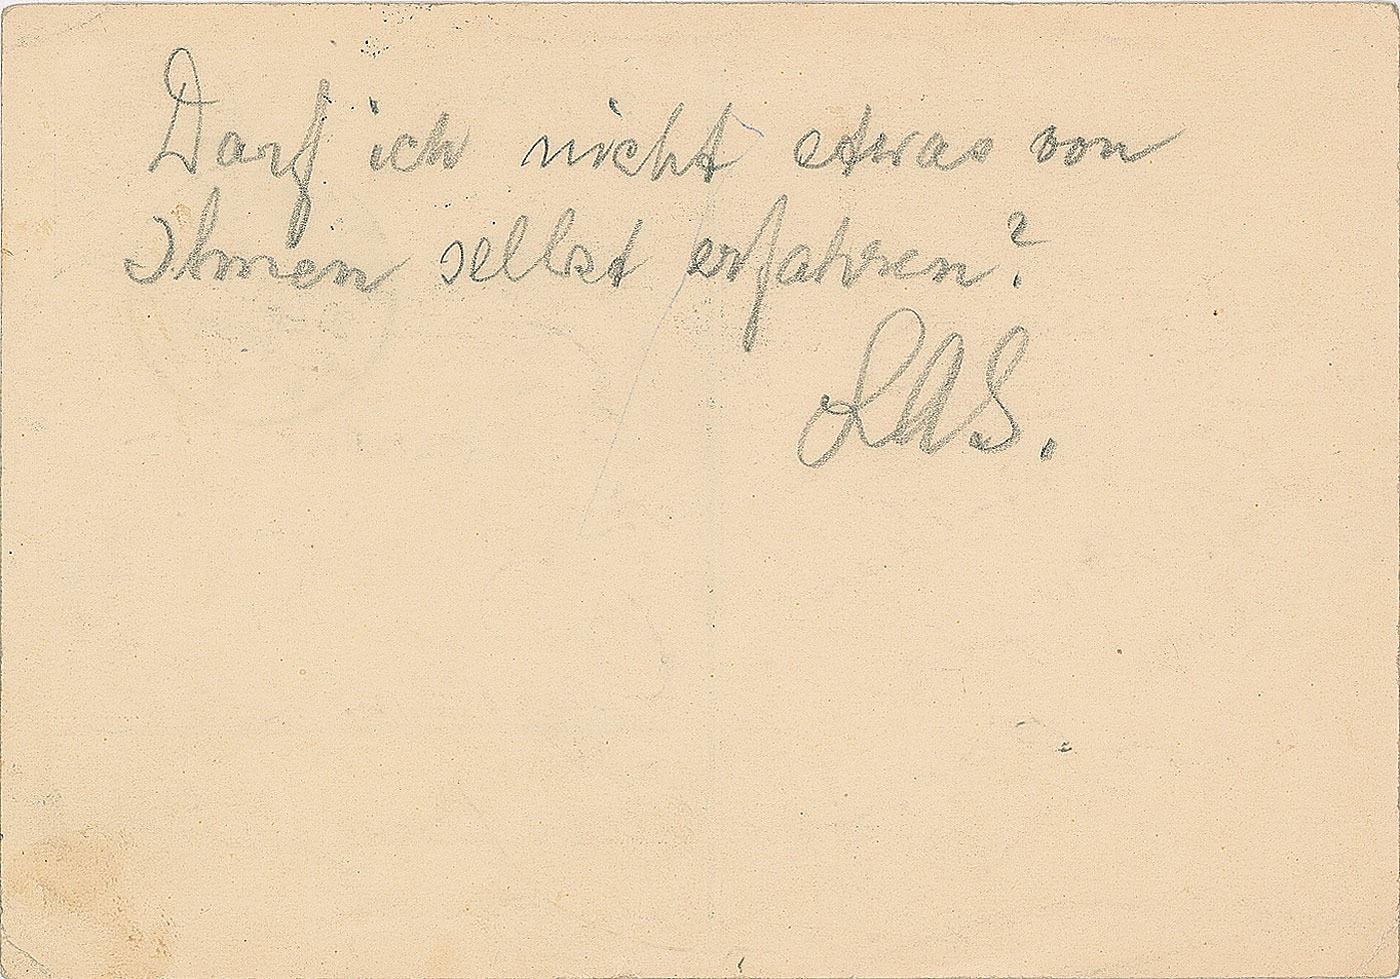 Darf ich nicht etwas von
Ihnen selbst erfahren?
LAS.